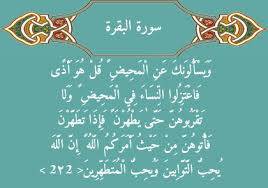 سورة البقرة
وَيَسْأَلُونَكَ عَنِ الْمَحِيضِ قُلْ هُوَ أَذًى
فَاعْتَزِلُوا النِّسَاءَ فِي الْمَحِيضِ وَلَا
تَقْرَبُوهُنَّ حَتَّىٰ يَطْهُرْنَ فَإِذَا تَطَهَّرْنَ
فَأْتُوهُنَّ مِنْ حَيْثُ أَمَرَكُمُ اللَّهُ إِنَّ اللَّهَ
يُحِبُّ التَّوَّابِينَ وَيُحِبُّ الْمُتَطَهِّرِينَ< 222 >